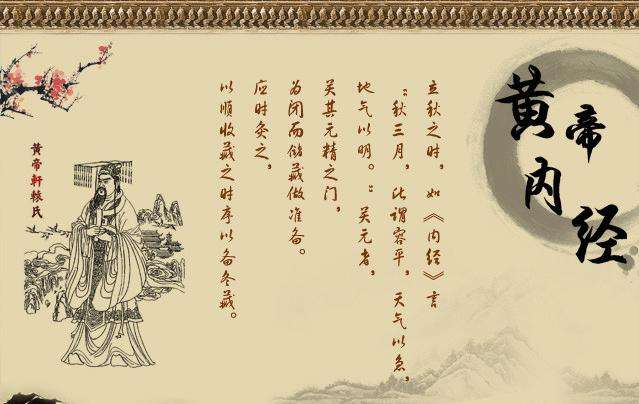 黄帝内经
立秋之时，如《内经》言
“秋三月，此谓容平，天气以急，
地气以明。”关元者，
关其元精之门，
为闭而储藏做准备。
应时灸之，
以顺收藏之时序以备冬藏。
黄帝軒轅氏